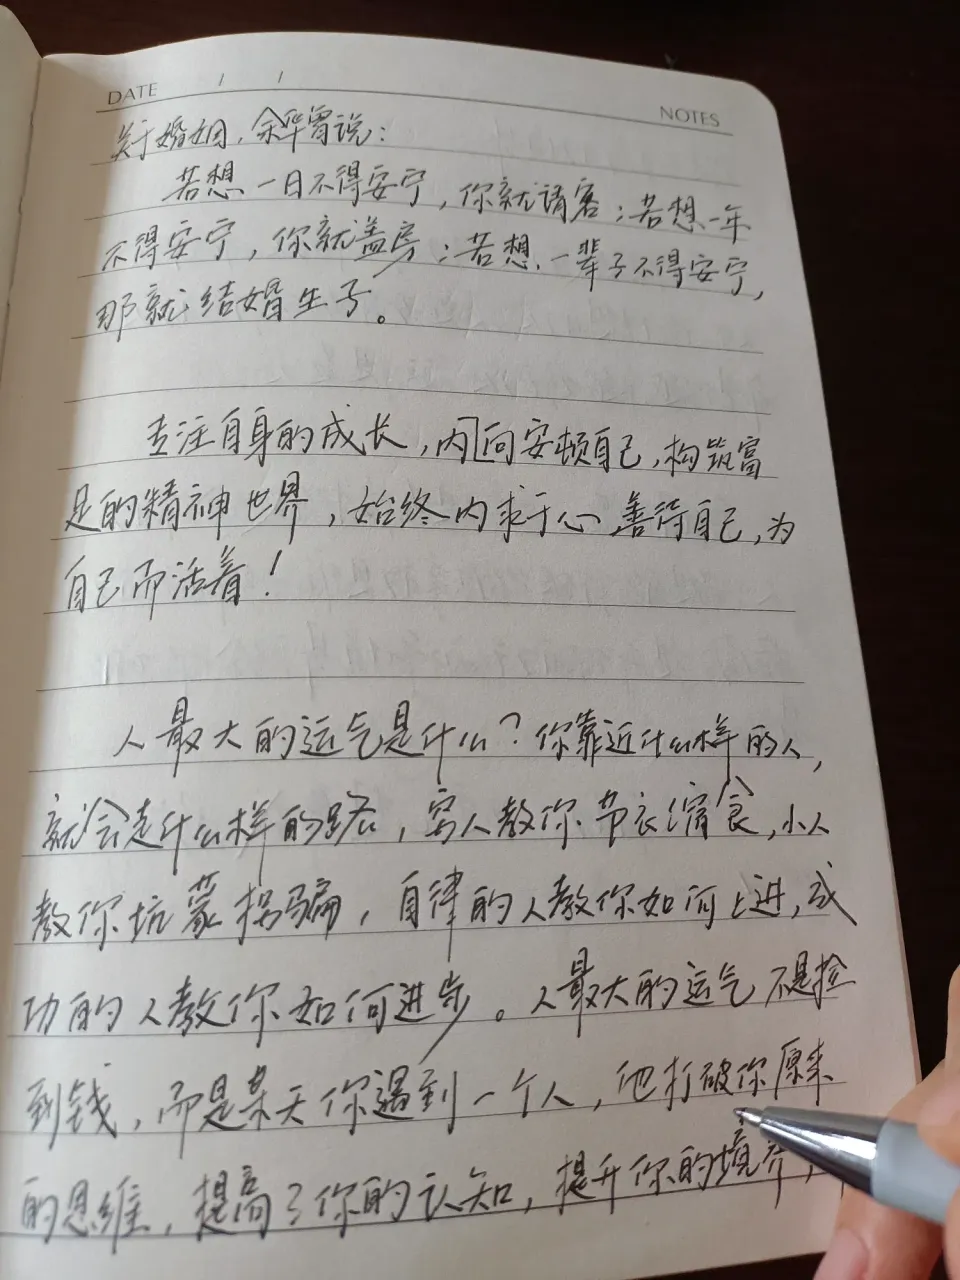 DATE / /
NOTES
关于婚姻,余华曾说:
若想一日不得安宁,你就请客;若想一年
不得安宁,你就盖房;若想一辈子不得安宁,
那就结婚生子。
专注自身的成长,内向安顿自己,构筑富
足的精神世界,始终内求于心,善待自己,为
自己而活着!
人最大的运气是什么?你靠近什么样的人,
就会走什么样的路,穷人教你节衣缩食,小人
教你坑蒙拐骗,自律的人教你如何上进,成
功的人教你如何进步。人最大的运气不是捡
到钱,而是某天你遇到一个人,他打破你原来
的思维,提高了你的认知,提升你的境界,